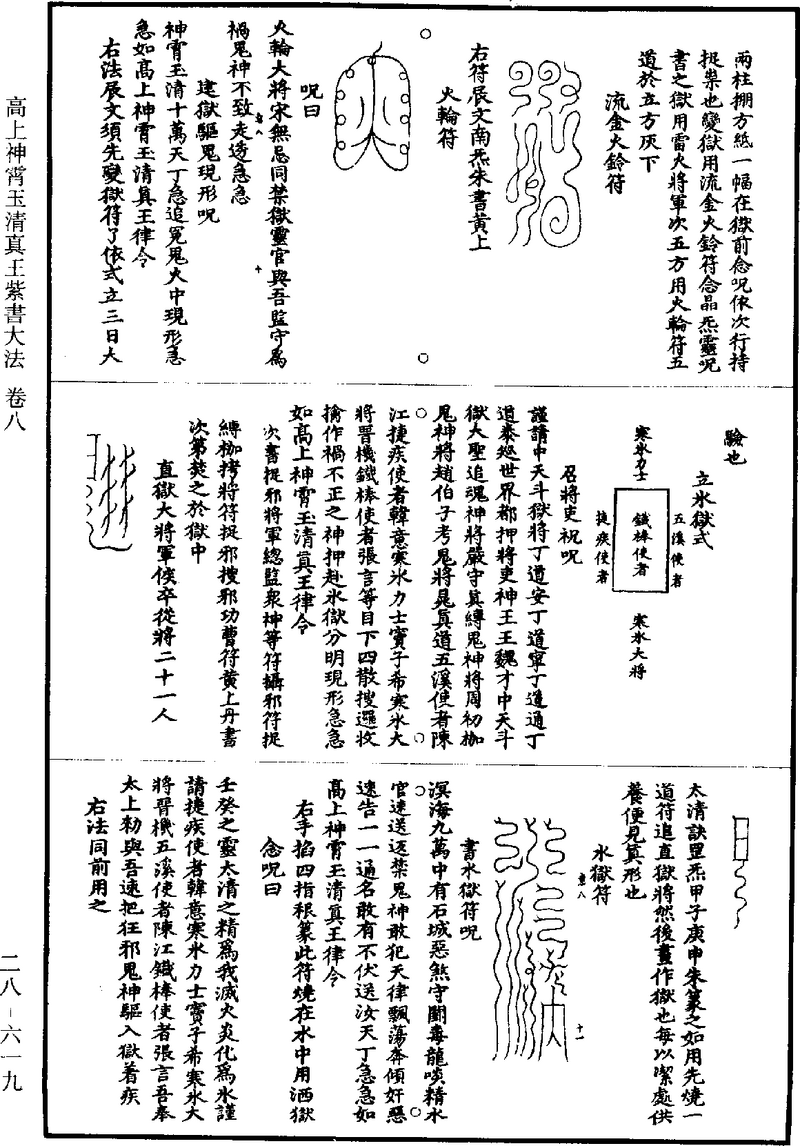 兩柱掤方紙一幅在獄前念呪依次行持
捉祟也變獄用流金火鈴符念晶炁靈呪
書之獄用雷火將軍次五方用火輪符五
道於立方灰下
流金火鈴符
右符辰文南炁朱書黃上
火輪符
呪曰
火輪大將宋無忌同禁獄靈官與吾監守為
禍鬼神不致走透急急
建獄驅鬼現形呪
神霄玉清十萬天丁急追冤鬼火中現形急
急如高上神霄玉清真王律令
右法辰文須先變獄符了依式立三日大
驗也
立氷獄式
五溪使者
寒氷力士
鐵棒使者
寒氷大將
捷疾使者
召將吏祝呪
謹請中天斗獄將丁道安丁道寧丁道通丁
道泰巡世界都押將吏神王王魏才中天斗
獄大聖追魂神將嚴守真縛鬼神將周初枷
鬼神將趙伯子考鬼將晁真道五溪使者陳
江捷疾使者韓意寒氷力士竇子希寒氷大
將晋機鐵棒使者張言等目下四散搜邏收
擒作禍不正之神押赴氷獄分明現形急急
如高上神霄玉清真王律令
次書捉邪將軍總監衆神等符攝邪符捉
縛枷拷將符捉邪搜邪功曹符黃上丹書
次第焚之於獄中
直獄大將軍倐卒從將二十一人
太清訣罡炁甲子庚申朱篆之如用先燒一
道符追直獄將然後畫作獄也每以潔處供
養便見真形也
氷獄符
書水獄符呪
溟海九萬中有石城惡煞守鬬毒龍啖精水
官速送迈禁鬼神敢犯天律飄蕩奔傾奸惡
速告一一通名敢有不伏送汝天丁急急如
高上神霄玉清真王律令
右手掐四指根篆此符燒在水中用洒獄
念呪曰
壬癸之靈太清之精為我滅火炎化為氷謹
請捷疾使者韓意寒氷力士竇子希寒氷大
將晋機五溪使者陳江鐵棒使者張言吾奉
太上勑與吾速把狂邪鬼神驅入獄着疾
右法同前用之
高上神霄玉清真王紫書大法 卷八
二八－六一九